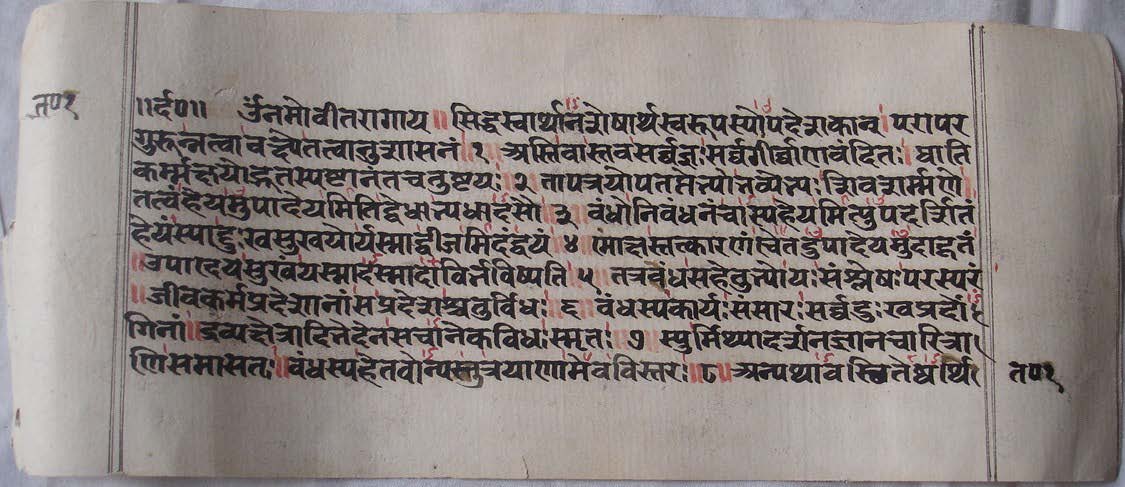 त॰प॰१
॥र्द०॥ ॐनमोवीतरागाय॥ सिद्धस्वार्थानशेषार्थस्वरूपस्योपदेशकान् । परापर
गुरून्नत्वावक्ष्येतत्वानुशासनं १ अस्तिवास्तवसर्व्वज्ञः सर्व्वगीर्व्वाणवंदितः । घाति
कर्म्मक्षयोद्भूतस्पष्टानंतचतुष्टयः २ तापत्रयोपतप्तेभ्योभव्येभ्यः शिवशर्म्मणे
तत्वंहेयमुपादेयमितिद्वेधाभ्यधादसौ ३ बंधोनिबंधनंचास्यहेयमित्युपदर्शितं
हेयंस्याद्दुःखसुखयोर्यस्माद्बीजमिदंद्वयं ४ मोक्षस्तत्कारणंचैतदुपादेयमुदाहृतं
॥उपादेयंसुखंयस्मादस्मादाविर्भविष्यति ५ तत्रबंधसहेतुभ्योयः संश्लेषः परस्परं
॥जीवकर्मप्रदेशानांसप्रदेशश्चतुर्विधः ६ बंधस्यकार्यः संसारः सर्व्वदुःखप्रदोंऽ
गिनां॥द्रव्यक्षेत्रादिभेदेनसचानेकविधः स्मृतः ७ स्युर्मिथ्यादर्शनज्ञानचारित्रा
णिसमासतः॥बंधस्यहेतवोन्यस्तुत्रयाणामेवविस्तरः॥८॥ अन्यथावस्थितेष्वर्थे
त॰प॰१